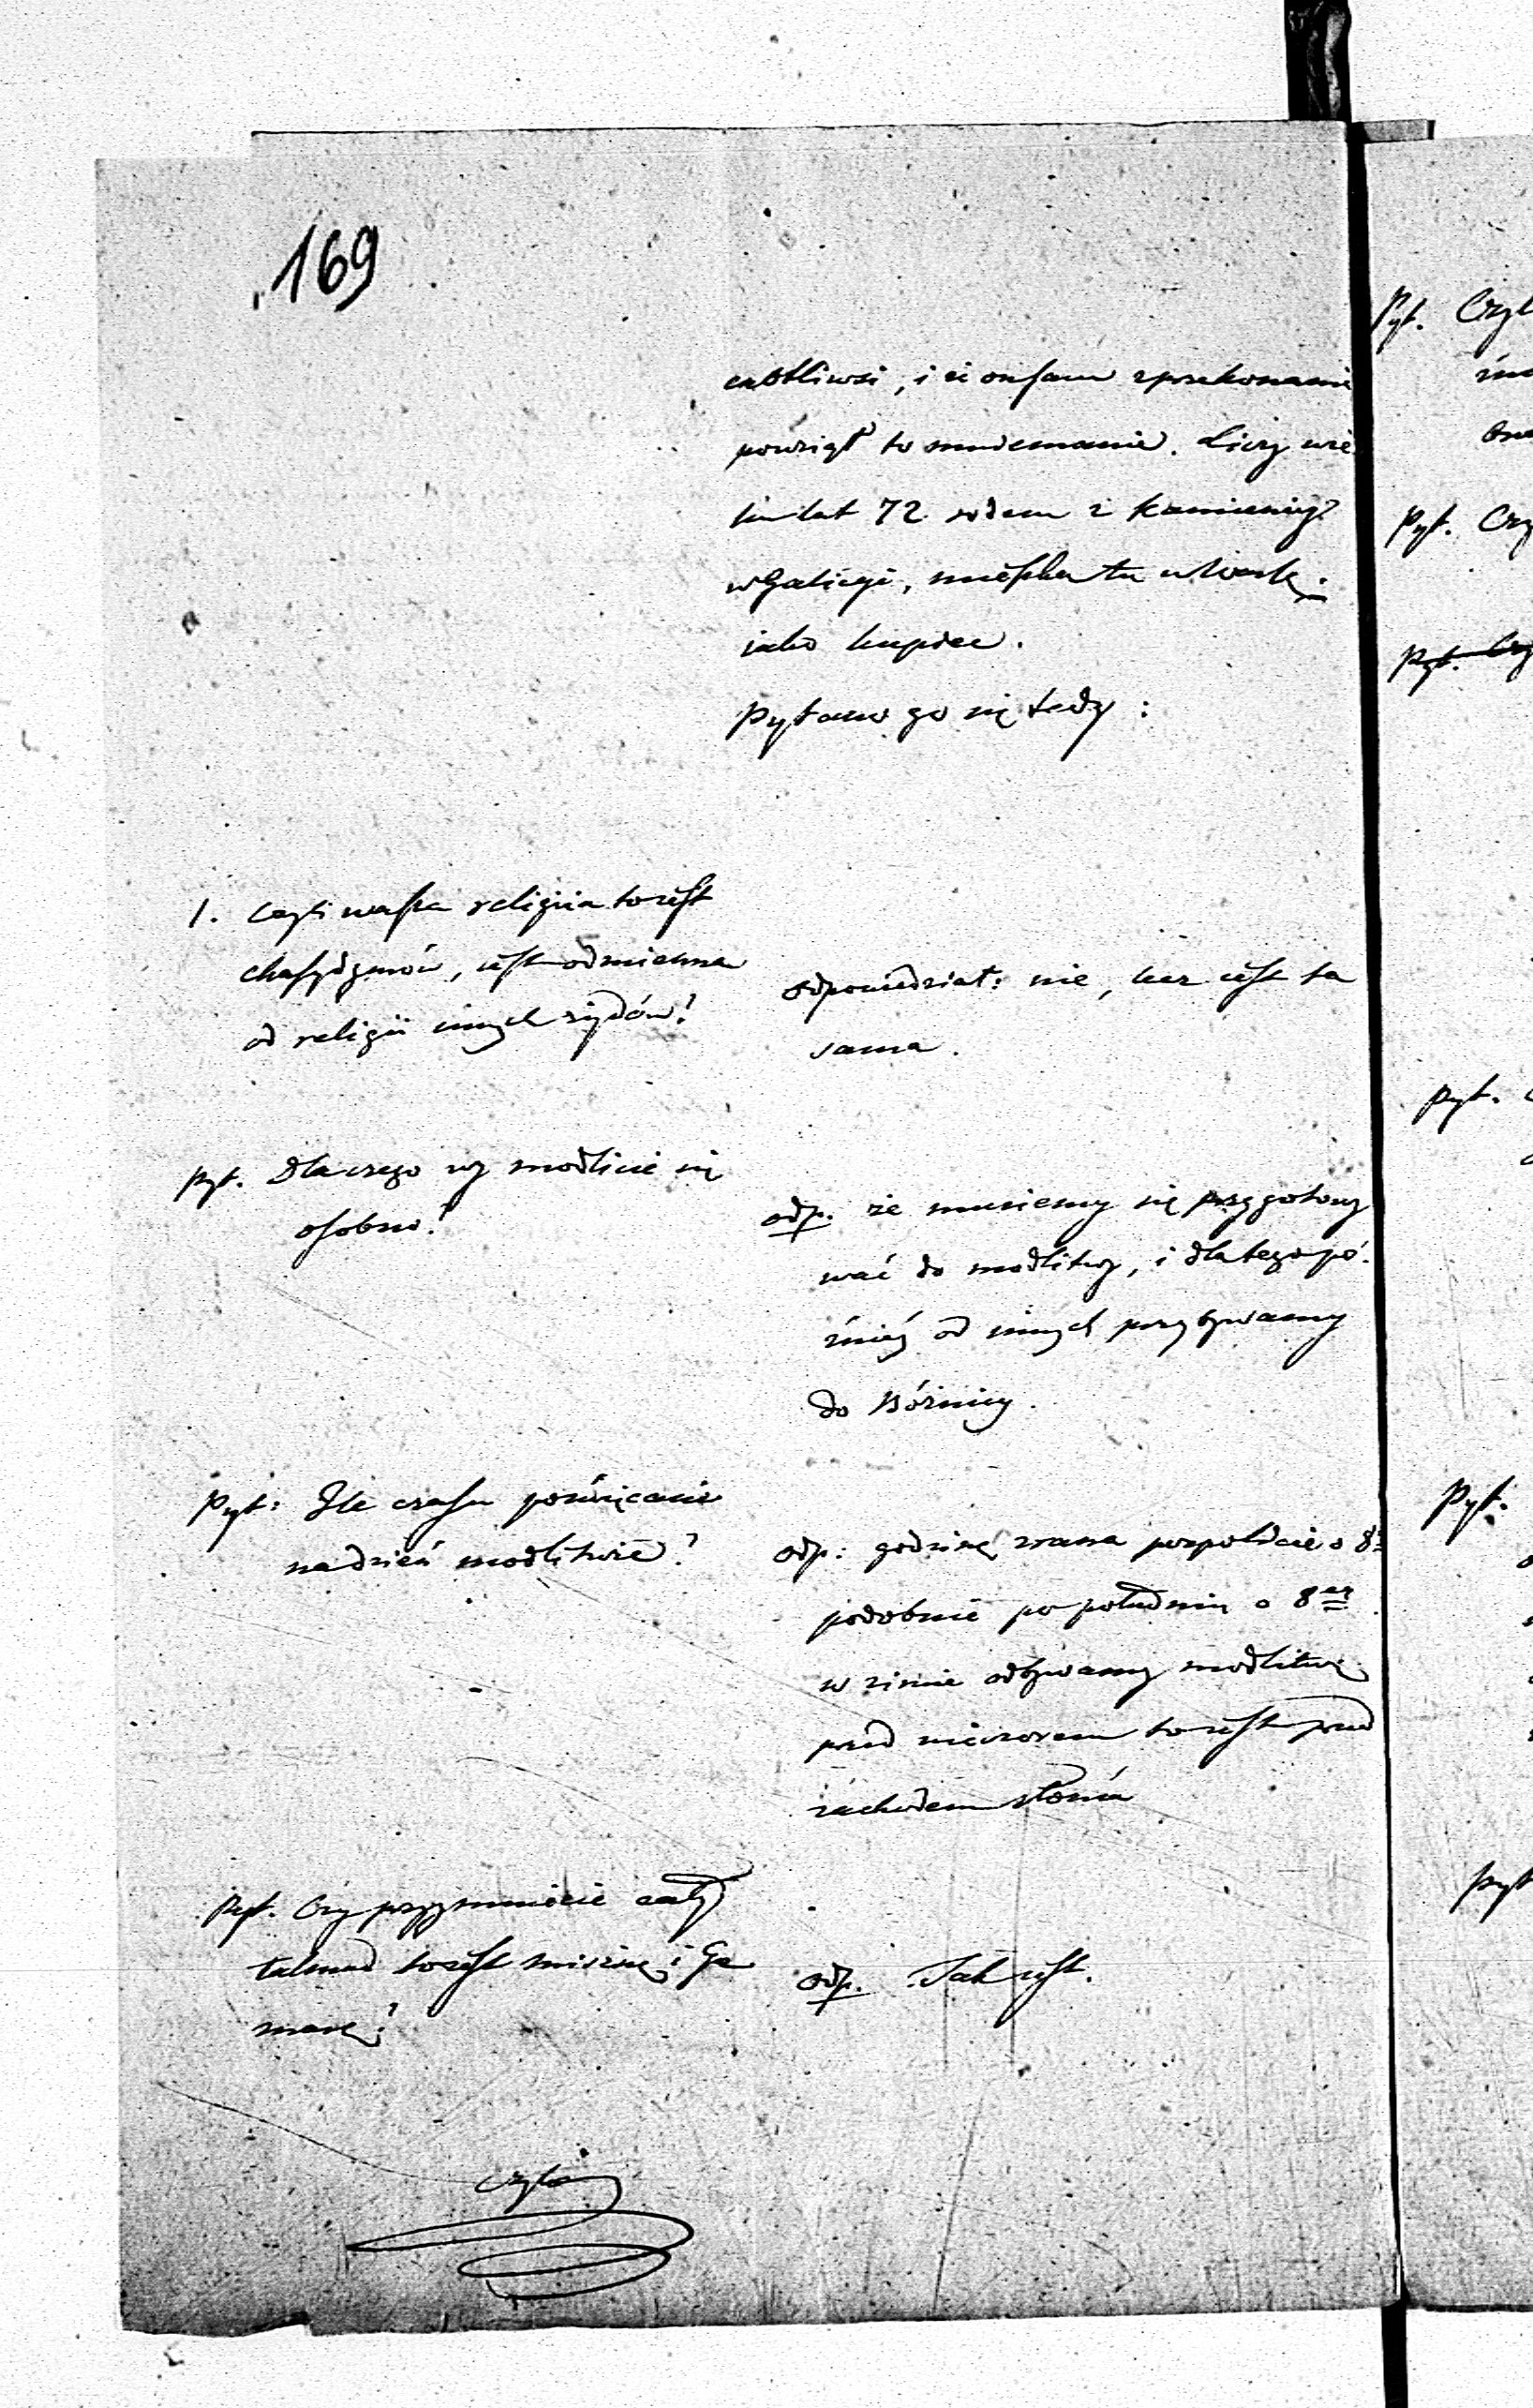 169
cnotliwsi, i że on sam z przekonania
powziął to mniemanie. Liczy wie
ku lat 72 rodem z Kamienicy
w Galicyi, mieszka tu
jako kupiec.
Pytano go się tedy:
1. Czyli wasza religia to iest
chassydymów, iest odmienna
od religii innych żydów?
odpowiedział: nie, lecz iest ta
sama.
Pyt. Dlaczego wy modlicie się
osobno?
odp. że musiemy się przygotowy
wać do modlitwy, i dlatego pó
źniéj od innych przybywamy
do Bóżnicy.
Pyt: Ile czasu poświęcacie
na dzień modlitwie?
odp: godzinę zrana pospolicie o 8ej
podobnie po południu o 8ej
w zimie odbywamy modlitwę
przed wieczorem to iest przed
zachodem słońca
Pyt. Czy przyjmuiecie cały
talmud to iest misznę i Ge
marę?
odp. Tak iest.
Pyt.
Pyt.
Pyt.
Pyt.
Pyt.
Pyt